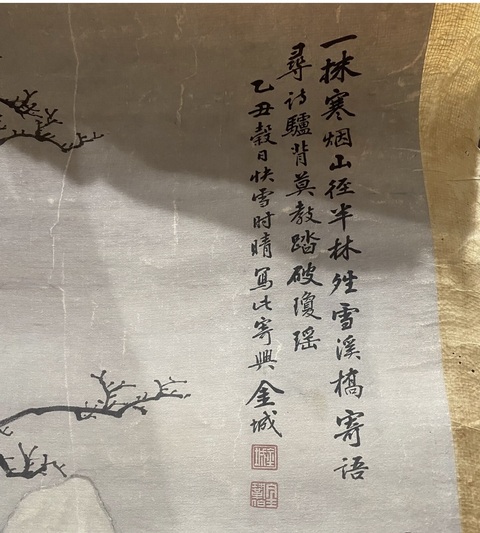 一抹寒烟山径半林残雪溪桥寄语
尋诗驢背莫教踏破瓊瑶
乙丑穀日快雪时晴寫此寄興金城